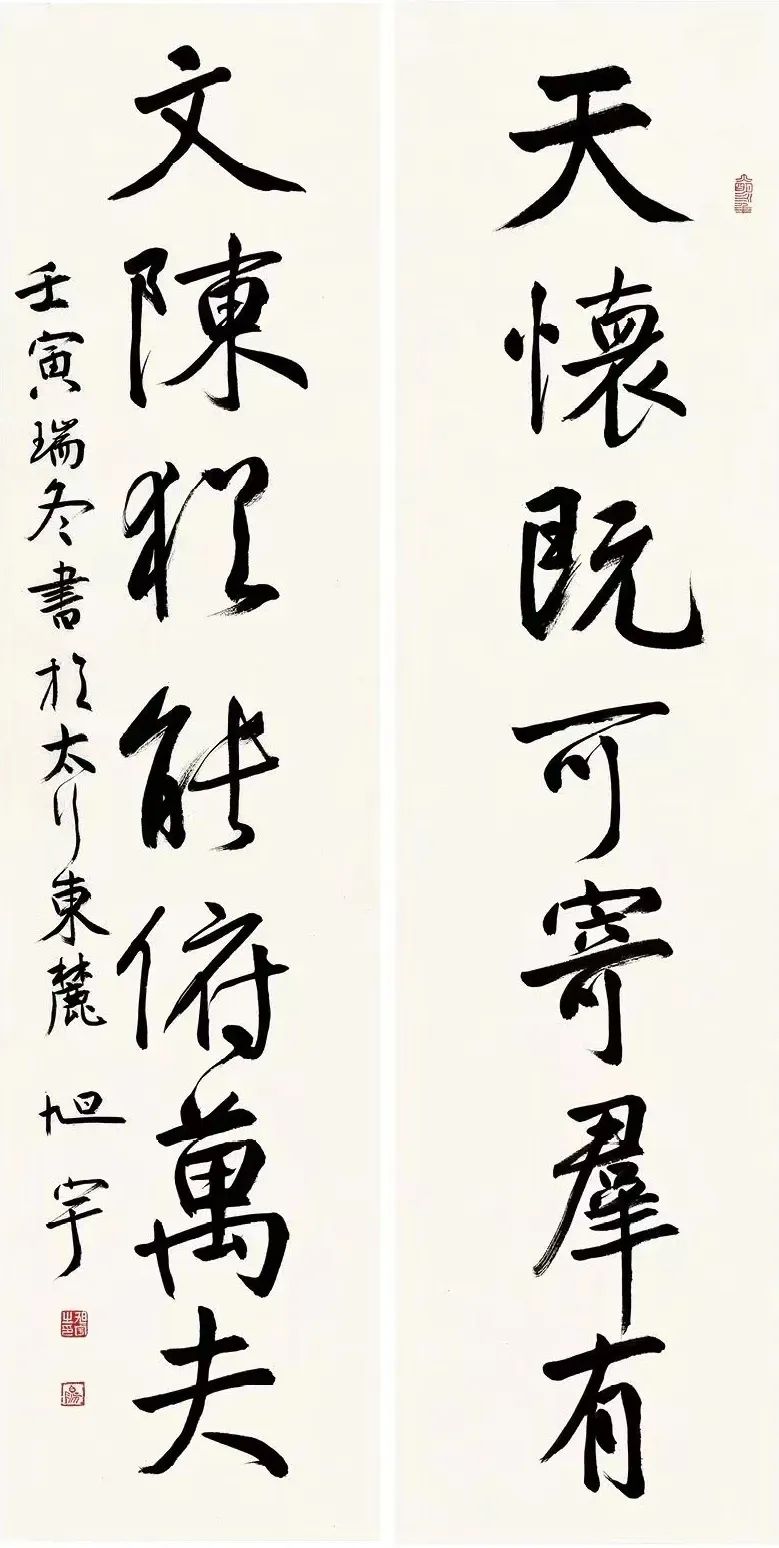 天懷既可寄羣有
文陳猶能俯萬夫
壬寅瑞冬書於太行東麓 旭宇